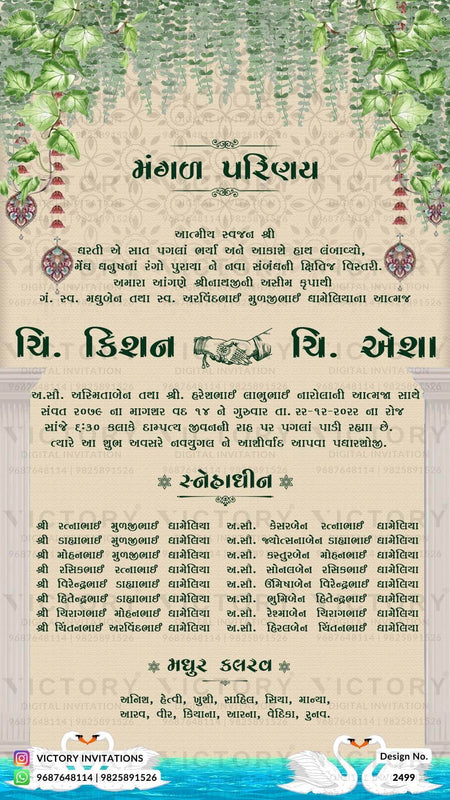 મંગળ પરિણય
આત્મીય સ્વજન શ્રી
ધરતી એ સાત પગલાં ભર્યા અને આકાશે હાથ લંબાવ્યો,
મેઘ ધનુષનાં રંગો પુરાયા ને નવા સંબંધની ક્ષિતિજ વિસ્તરી.
અમારા આંગણે શ્રીનાથજીની અસીમ કૃપાથી
ગં. સ્વ. મધુબેન તથા સ્વ. અરવિંદભાઈ મુળજીભાઈ ધામેલિયાના આત્મજ
ચિ. કિશન ચિ. એશા
અ.સૌ. અસ્મિતાબેન તથા શ્રી. હરેશભાઈ લાભુભાઈ નારોલાની આત્મજા સાથે
સંવત ૨૦૭૯ ના માગશર વદ ૧૪ ને ગુરુવાર તા. ૨૨-૧૨-૨૦૨૨ ના રોજ
સાંજે ૬:૩૦ કલાકે દામ્પત્ય જીવનની રાહ પર પગલાં પાડી રહ્યા છે.
ત્યારે આ શુભ અવસરે નવયુગલ ને આશીર્વાદ આપવા પધારશોજી.
સ્નેહાધીન
શ્રી રત્નાભાઈ મુળજીભાઈ ધામેલિયા અ.સૌ. કેસરબેન રત્નાભાઈ ધામેલિયા
શ્રી ડાહ્યાભાઈ મુળજીભાઈ ધામેલિયા અ.સૌ. જ્યોત્સનાબેન ડાહ્યાભાઈ ધામેલિયા
શ્રી મોહનભાઈ મુળજીભાઈ ધામેલિયા અ.સૌ. કસ્તુરબેન મોહનભાઈ ધામેલિયા
શ્રી રસિકભાઈ રત્નાભાઈ ધામેલિયા અ.સૌ. સોનલબેન રસિકભાઈ ધામેલિયા
શ્રી વિરેન્દ્રભાઈ ડાહ્યાભાઈ ધામેલિયા અ.સૌ. ઊર્મિષાબેન વિરેન્દ્રભાઈ ધામેલિયા
શ્રી હિતેન્દ્રભાઈ ડાહ્યાભાઈ ધામેલિયા અ.સૌ. ભુમિબેન હિતેન્દ્રભાઈ ધામેલિયા
શ્રી ચિરાગભાઈ મોહનભાઈ ધામેલિયા અ.સૌ. રેશ્માબેન ચિરાગભાઈ ધામેલિયા
શ્રી ચિંતનભાઈ અરવિંદભાઈ ધામેલિયા અ.સૌ. હિરલબેન ચિંતનભાઈ ધામેલિયા
મધુર કલરવ
અનિશ, હેત્વી, ખુશી, સાહિલ, સિયા, માન્યા,
આરવ, વીર, કિયાના, આરના, વેદિકા, રુનવ.
VICTORY INVITATIONS
9687648114 | 9825891526
Design No.
2499